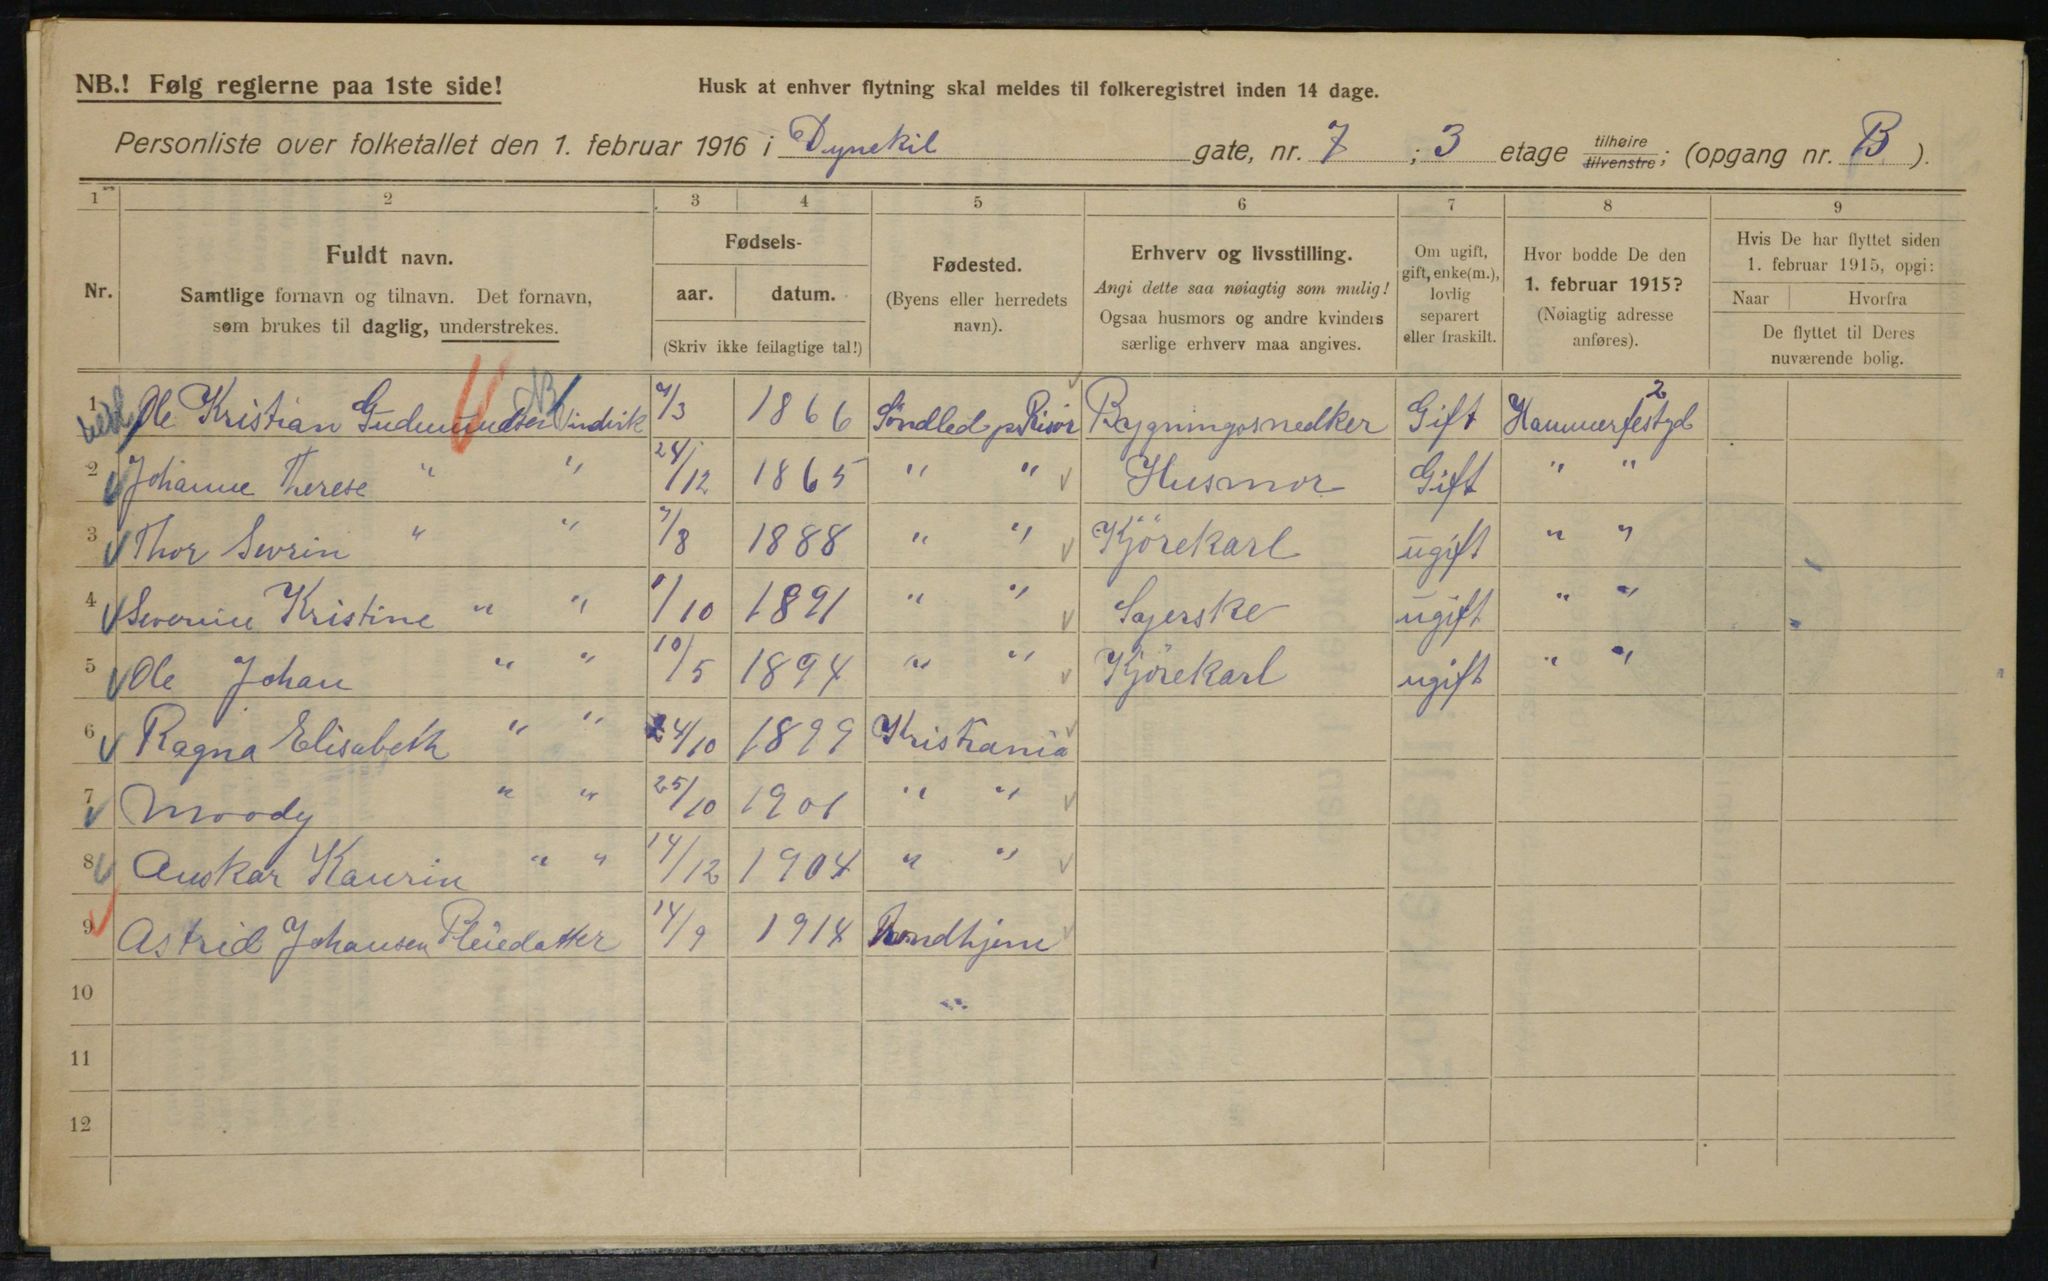 NB.! Følg reglerne paa 1ste side!
Husk at enhver flytning skal meldes til folkeregistret inden 14 dage.
Personliste over folketallet den 1. februar 1916 i Dynekil gate, nr. 7 ; 3 etage tilhøire tilvenstre ; (opgang nr. B ).
1 2 3 4 5 6 7 8 9
Nr.
Fuldt navn.
Samtlige fornavn og tilnavn. Det fornavn,
som brukes til daglig, understrekes.
Fødsels-
aar. datum.
(Skriv ikke feilagtige tal!)
Fødested.
(Byens eller herredets
navn).
Erhverv og livsstilling.
Angi dette saa nøiagtig som mulig!
Ogsaa husmors og andre kvinders
særlige erhverv maa angives.
Om ugift,
gift, enke(m.),
lovlig
separert
eller fraskilt.
Hvor bodde De den
1. februar 1915?
(Nøiagtig adresse
anføres).
Hvis De har flyttet siden
1. februar 1915, opgi:
Naar Hvorfra
De flyttet til Deres
nuværende bolig.
1 Ole Kristian Gudmundsen Vindvik 7/3 1866 Söndled pr Risör Bygningssnedker Gift Hammerfestgd 2
2 Johanne Therese " " 24/12 1865 " " Husmor Gift " "
3 Thor Sevrin " " 7/8 1888 " " Kjörekarl ugift " "
4 Severine Kristine " " /10 1891 " " Syerske ugift " "
5 Ole Johan " " 10/5 1894 " " Kjörekarl ugift " "
6 Ragna Elisabeth " " 24/10 1899 Kristiania
7 Moody " " 25/10 1901 " "
8 Anskar Kaurin " " 14/12 1904 " "
9 Astrid Johansen Pleiedatter 14/9 1914 Trondhjem
10
11
12